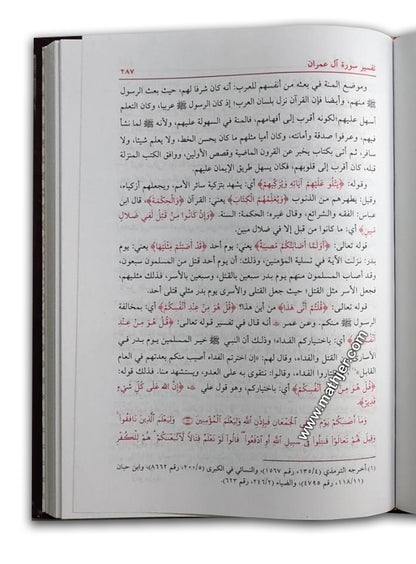 تفسير سورة آل عمران
٢٨٧
وموضع المنة في بعثه من أنفسهم للعرب: أنه كان شرفا لهم، حيث بعث الرسول
ﷺ منهم، وأيضا فإن القرآن نزل بلسان العرب؛ إذ كان الرسول ﷺ عربيا، وكان التعلم
أسهل عليهم؛ لكونه أقرب إلى أفهامهم، فالمنة في السهولة عليهم، ولأنه لما نشأ
فيهم، وعرفوا صدقه وأمانته، وكان أميا مثلهم ما كان يحسن الخط، ولا يعلم شيئا، ولا
سافر، ثم أتى بكتاب يخبر عن القرون الماضية وقصص الأولين، ووافق الكتب المنزلة
قبله، كان أقرب إلى قلوبهم، فكان يسهل طريق الإيمان عليهم.
وقوله: ﴿يَتْلُو عَلَيْهِمْ آيَاتِهِ وَيُزَكِّيهِمْ﴾ أي: يشهد بتزكية سائر الأمم، ويجعلهم أزكياء،
وقيل: يطهرهم من الذنوب ﴿وَيُعَلِّمُهُمُ الْكِتَابَ﴾ يعني: القرآن ﴿وَالْحِكْمَةَ﴾، قال ابن
عباس: الفقه والشرائع، وقال غيره: الحكمة: السنة. ﴿وَإِنْ كَانُوا مِنْ قَبْلُ لَفِي ضَلَالٍ
مُبِينٍ﴾ أي: ما كانوا من قبل إلا في ضلال مبين.
قوله تعالى: ﴿أَوَلَمَّا أَصَابَتْكُمْ مُصِيبَةٌ﴾ يعني: يوم أحد ﴿قَدْ أَصَبْتُمْ مِثْلَيْهَا﴾ يعني: يوم
بدر؛ نزلت الآية في تسلية المؤمنين، وذلك: أن يوم أحد قتل من المسلمون سبعون،
وقد أصاب المسلمون منهم يوم بدر سبعين بالقتل، وسبعين بالأسر، فذلك مثليهم،
فجعل الأسر مثل القتل؛ حيث جعل القتلى والأسرى يوم بدر مثلي قتلى أحد.
قوله تعالى: ﴿قُلْتُمْ أَنَّى هَذَا﴾ من أين هذا؟ ﴿قُلْ هُوَ مِنْ عِنْدِ أَنْفُسِكُمْ﴾ أي: بمخالفة
الرسول ﷺ منكم. وعن عمر أنه قال في تفسير قوله تعالى: ﴿قُلْ هُوَ مِنْ عِنْدِ
أَنْفُسِكُمْ﴾ أي: باختياركم الفداء؛ وذلك أن النبي ﷺ خير المسلمين يوم بدر في
الأسارى بين القتل والفداء، وقال لهم: «إن اخترتم الفداء أصيب منكم بعدتهم في العام
القابل» فاختاروا الفداء، وقالوا: نتقوى به على العدو، ويستشهد منا. فذلك قوله:
﴿قُلْ هُوَ مِنْ عِنْدِ أَنْفُسِكُمْ﴾ أي: باختياركم، وهو قول علي ﴿إِنَّ اللَّهَ عَلَى كُلِّ شَيْءٍ
قَدِيرٌ﴾
وَمَا أَصَابَكُمْ يَوْمَ الْتَقَى الْجَمْعَانِ فَبِإِذْنِ اللَّهِ وَلِيَعْلَمَ الْمُؤْمِنِينَ وَلِيَعْلَمَ الَّذِينَ نَافَقُوا
وَقِيلَ لَهُمْ تَعَالَوْا قَاتِلُوا فِي سَبِيلِ اللَّهِ أَوِ ادْفَعُوا قَالُوا لَوْ نَعْلَمُ قِتَالًا لَاتَّبَعْنَاكُمْ هُمْ لِلْكُفْرِ
(١) أخرجه الترمذي (١٣٥/٤، رقم ١٥٦٧)، والنسائي في الكبرى (٢٠٠/٥، رقم ٨٦٦٢)، وابن حبان
(١١٨/١١، رقم ٤٧٩٥)، والضياء (٢٤٦/٢، رقم ٦٢٣).
www.mathjer.com